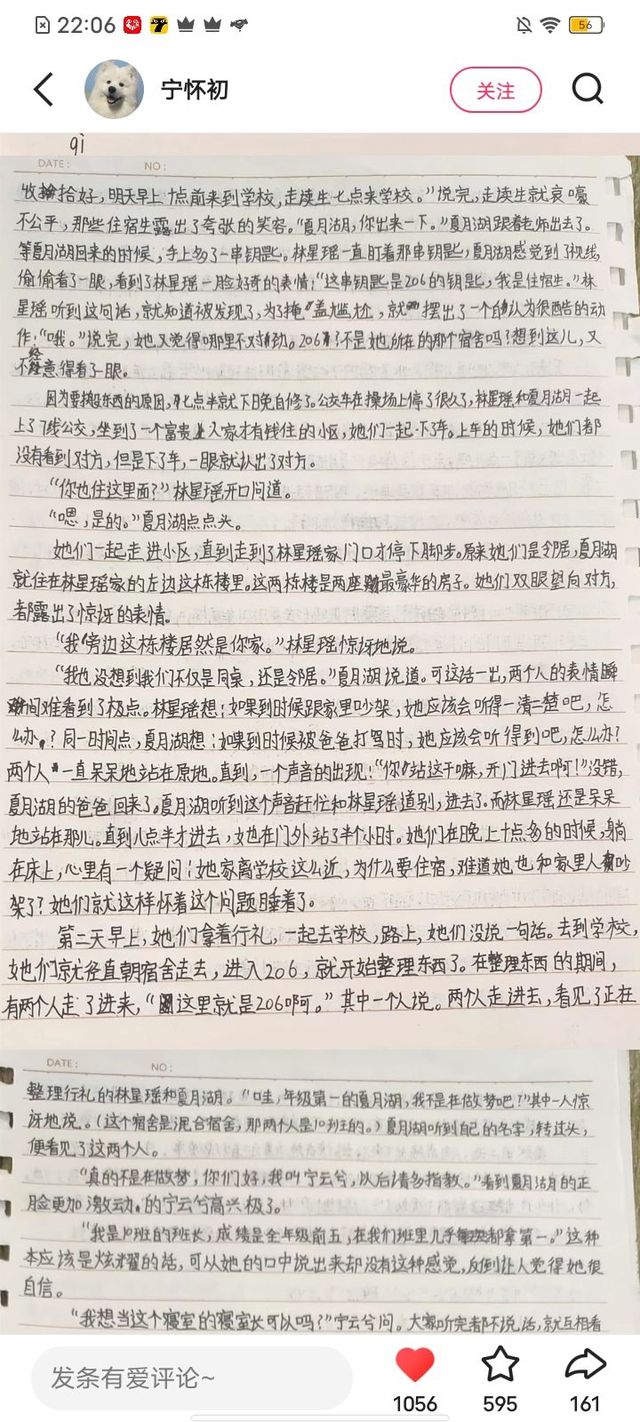 22:06
56
宁怀初
关注
qi
DATE: NO:
收拾好,明天早上十点前来到学校,走读生七点来学校。”说完,走读生就哀嚎
不公平,那些住宿生露出了夸张的笑容。“夏月湖,你出来一下。”夏月湖跟着老师出去了。
等夏月湖回来的时候,手上多了一串钥匙。林星瑶一直盯着那串钥匙,夏月湖感觉到了视线,
偷偷看了一眼,看到了林星瑶一脸好奇的表情:“这串钥匙是206的钥匙,我是住宿生。”林
星瑶听到这句话,就知道被发现了,为了掩盖尴尬,就摆出了一个自认为很酷的动
作:“哦。”说完,她又觉得哪里不对劲。206?不是她所在的那个宿舍吗?想到这儿,又
不经意得看了一眼。
因为要搬东西的原因,七点半就下日免自修了。公交车在操场上停了很久了,林星瑶和夏月湖一起
上了7线公交,坐到了一个富贵人家才有钱住的小区,她们一起下车。上车的时候,她们都
没有看到对方,但是下了车,一眼就认出了对方。
“你也住这里面?”林星瑶开口问道。
“嗯,是的。”夏月湖点点头。
她们一起走进小区,直到走到了林星瑶家门口才停下脚步。原来她们是邻居,夏月湖
就住在林星瑶家的左边这栋楼里。这两栋楼是两座最豪华的房子。她们双眼望向对方,
都露出了惊讶的表情。
“我旁边这栋楼居然是你家。”林星瑶惊讶地说。
“我也没想到我们不仅是同桌,还是邻居。”夏月湖说道。可这话一出,两个人的表情瞬
间难看到了极点。林星瑶想:如果到时候跟家里吵架,她应该会听得一清二楚吧,怎
么办?同一时间点,夏月湖想:如果到时候被爸爸打骂时,她应该会听得到吧,怎么办?
两个人一直呆呆地站在原地。直到,一个声音的出现:“你站这干嘛,开门进去啊!”没错,
夏月湖的爸爸回来了。夏月湖听到这个声音赶忙和林星瑶道别,进去了。而林星瑶还是呆呆
地站在那儿。直到八点半才进去,她在门外站了半个小时。她们在晚上十点多的时候,躺
在床上,心里有一个疑问:她家离学校这么近,为什么要住宿,难道她也和家里人吵
架了?她们就这样怀着这个问题睡着了。
第二天早上,她们拿着行礼,一起去学校,路上,她们没说一句话。去到学校,
她们就径直朝宿舍走去,进入206,就开始整理东西了。在整理东西的期间,
有两个人走了进来,“这里就是206啊。”其中一个人说。两人走进去,看见了正在
DATE: NO:
整理行礼的林星瑶和夏月湖。“哇,年级第一的夏月湖,我不是在做梦吧?”其中一人惊
讶地说。(这个宿舍是混合宿舍,那两个人是10班的。)夏月湖听到自己的名字,转过头,
便看见了这两个人。
“真的不是在做梦,你们好,我叫宁云兮,以后请多指教。”看到夏月湖的正
脸更加激动的宁云兮高兴极了。
“我是10班的班长,成绩是全年级前五,在我们班里几乎每次都拿第一。”这种
本应该是炫耀的话,可从她的口中说出来却没有这种感觉,反倒让人觉得她很
自信。
“我想当这个寝室的寝室长可以吗?”宁云兮问。大家听完都不说话,就互相看
发条有爱评论~
1056
595
161